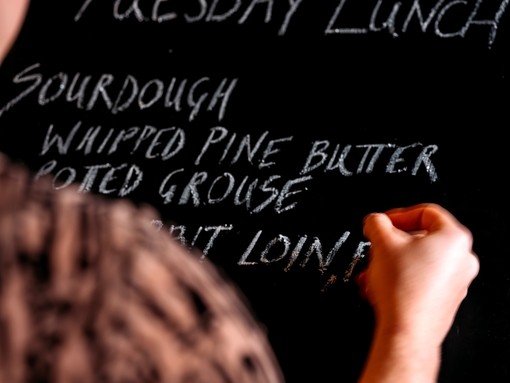 TUESDAY LUNCH
SOURDOUGH
WHIPPED PINE BUTTER
POTED GROUSE
LOIN,